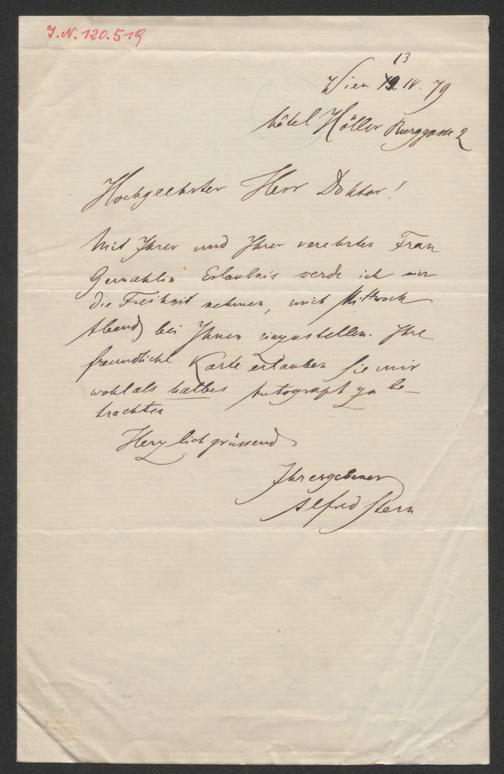 I.N. 120.519
13
Wien 19. IV. 79
Hôtel Höller Burggasse 2
Hochgeehrter Herr Doktor!
Mit Ihrer und Ihrer verehrten Frau
Gemahlin Erlaubnis werde ich mir
die Freiheit nehmen, mich Mittwoch
Abend bei Ihnen einzustellen. Ihre
freundliche Karte erlauben Sie mir
wohl als halbes Autograph zu be-
trachten
Herzlich grüssend
Ihr ergebener
Alfred Stern